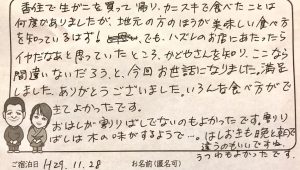 香住で生がニを買って帰り、カニスキで食べたことは
何度かありましたが、地元の方のほうが美味しい食べ方
を知っているはず! でも、ハズレのお店にあたったら
イヤだなあと思っていたところ、かどやさんを知り、ここなら
間違いないだろう、と、今回お世話になりました。満足
しました。ありがとうございました。いろんな食べ方がで
きてよかったです。
おはしが割りばしでないのもよかったです。割り
ばしは木の味がするようで…。はしおきも晩と朝で
違うのもいいですね。
うつわもよかったです。
ご宿泊日 H29.11.28 お名前(匿名可)